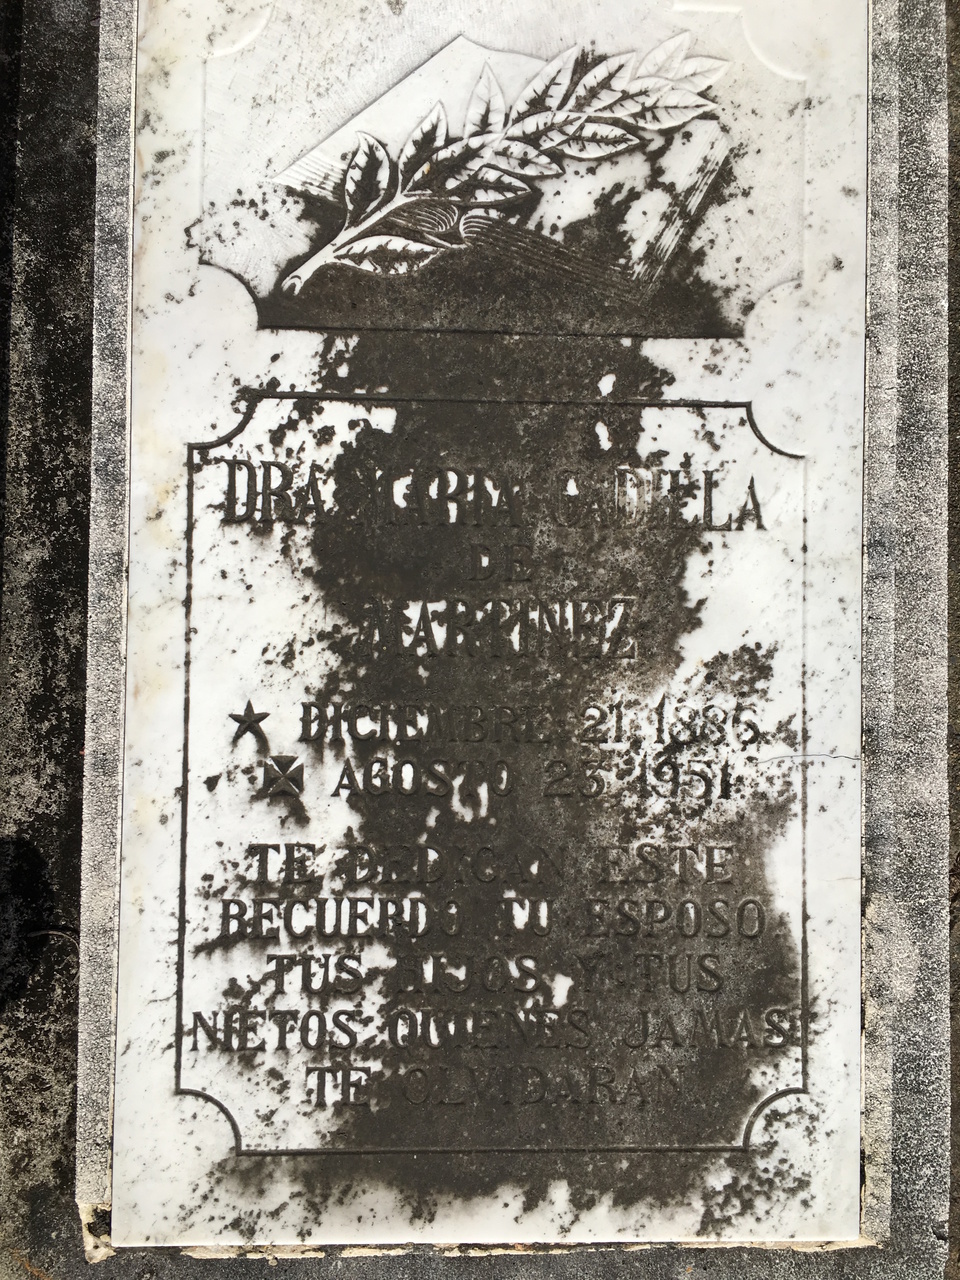 DRA. MARIA CADILLA
DE
MARTINEZ
DICIEMBRE 21 1886
AGOSTO 23 1951
TE DEDICAN ESTE
RECUERDO TU ESPOSO
TUS HIJOS Y TUS
NIETOS QUIENES JAMAS
TE OLVIDARAN